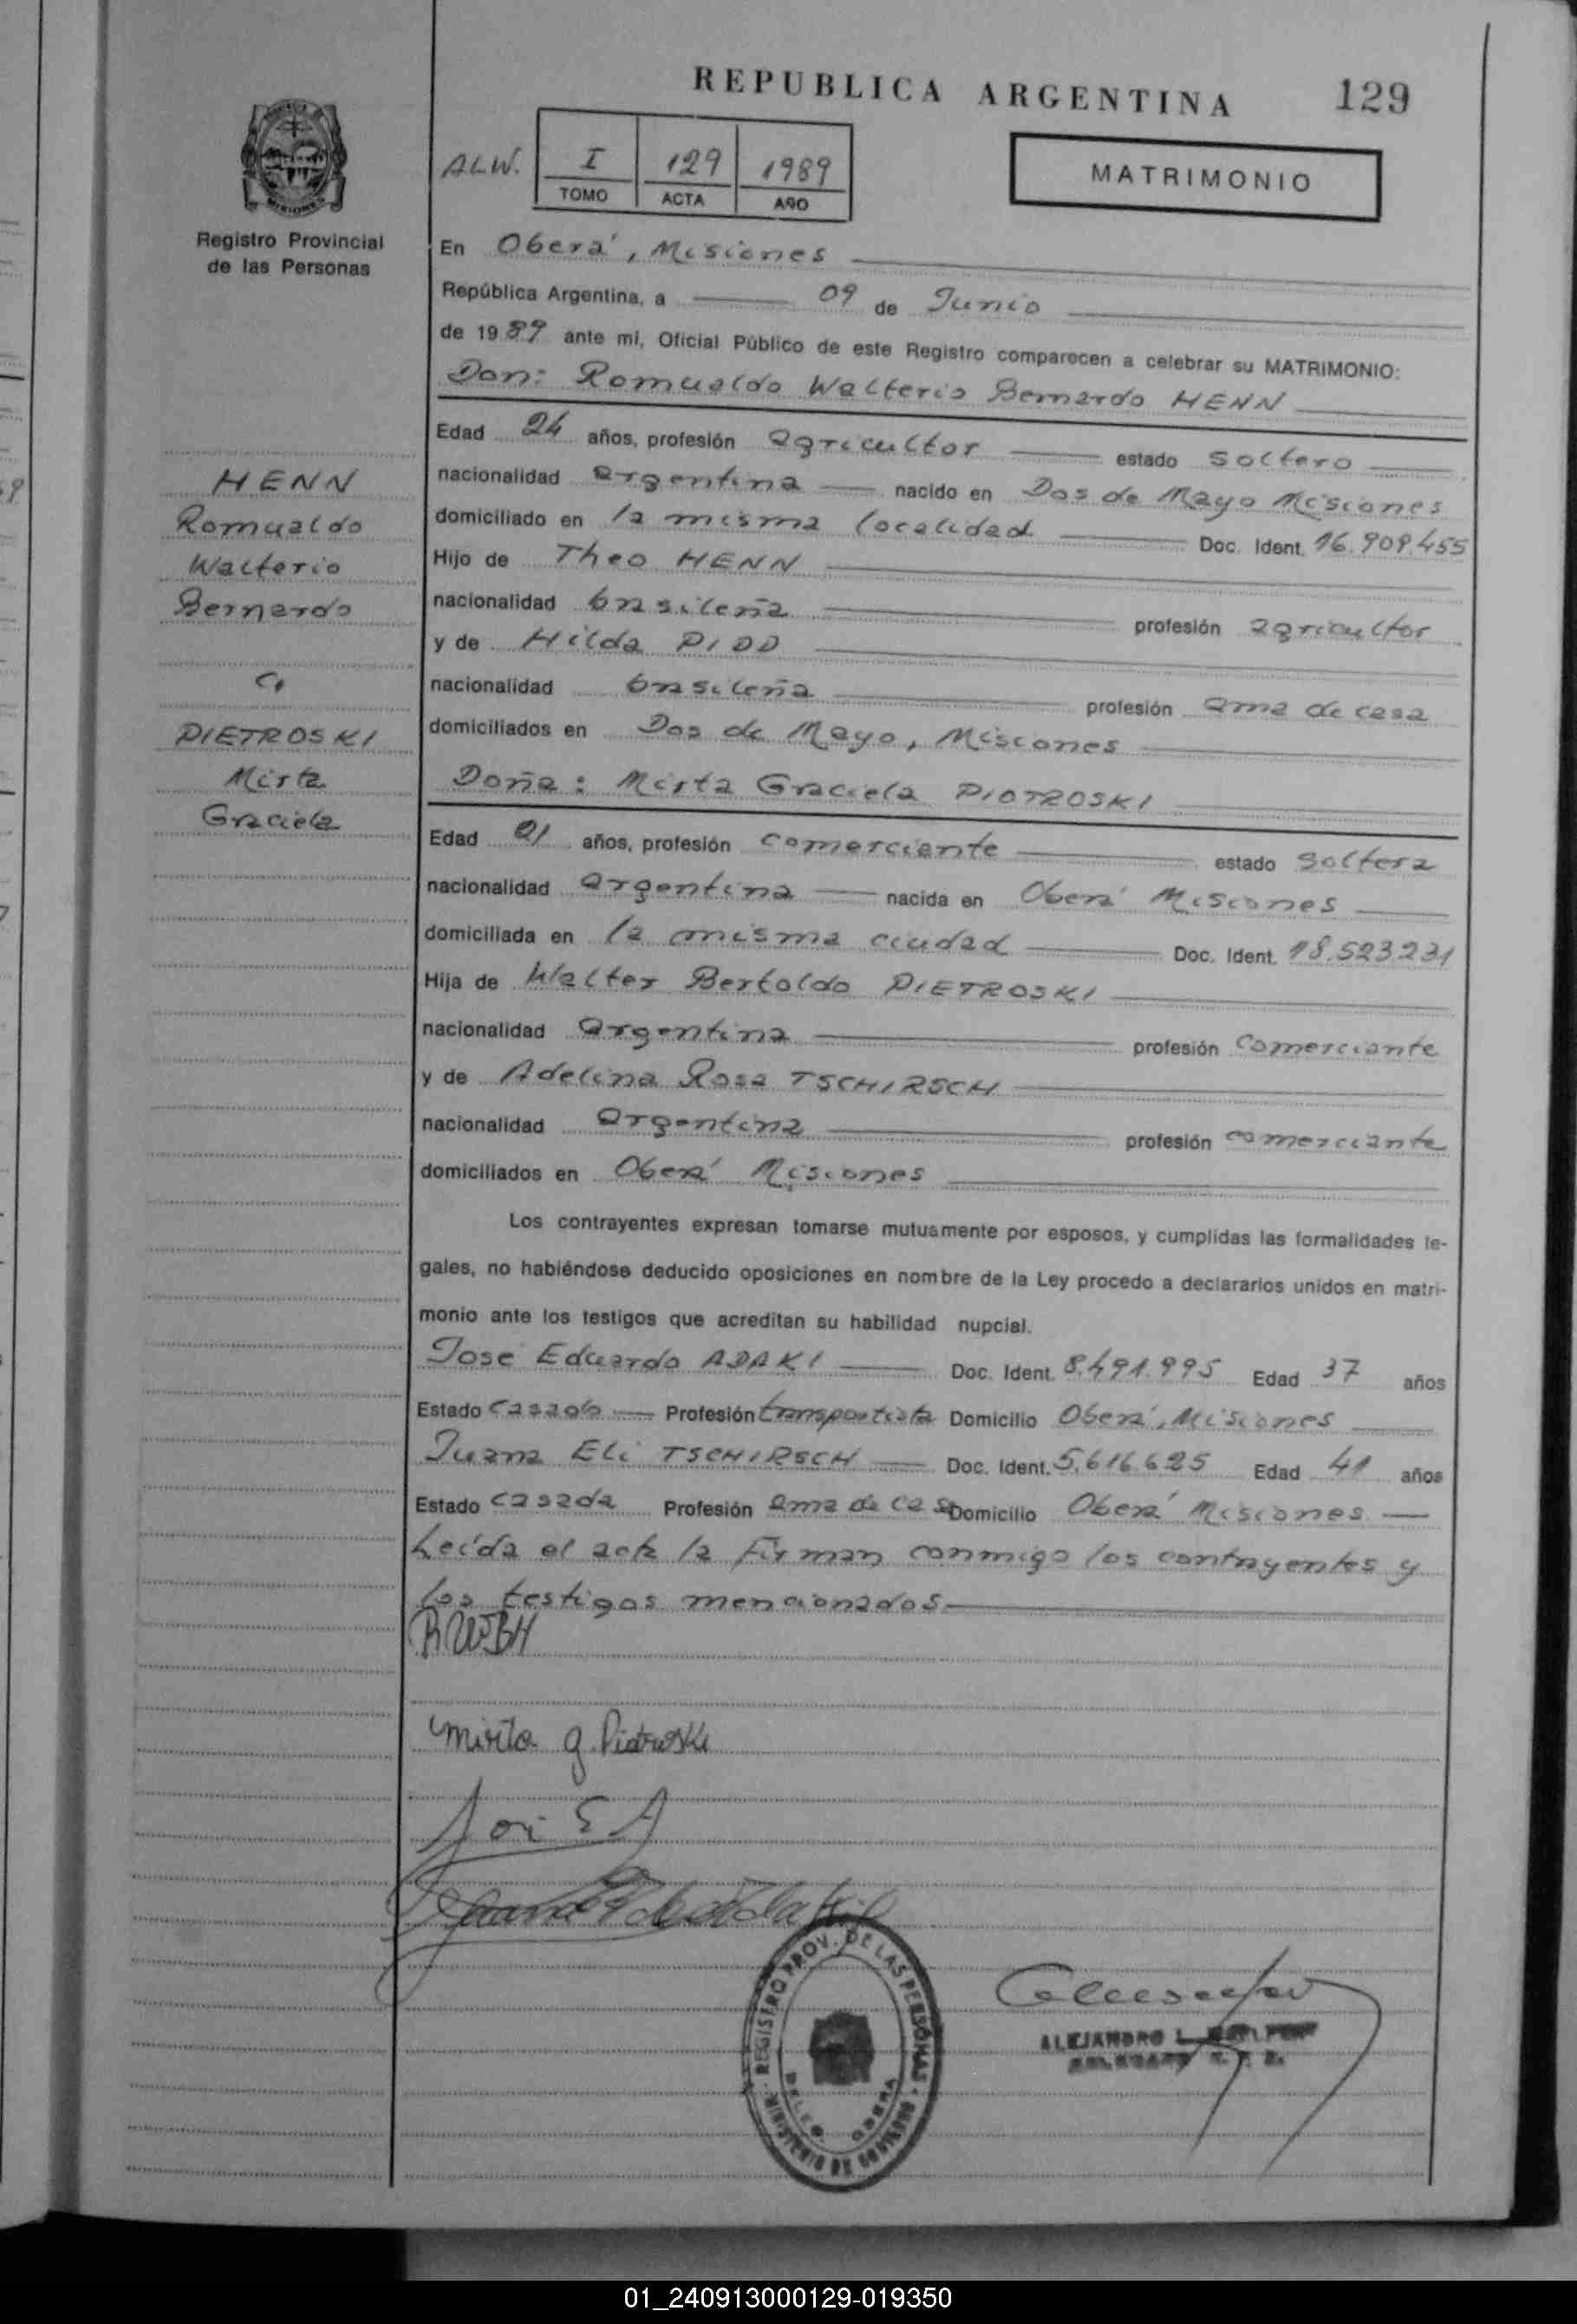 REPUBLICA ARGENTINA 129
ALW. I TOMO 129 ACTA 1989 AÑO
MATRIMONIO
MISIONES
Registro Provincial
de las Personas
En Oberá, Misiones
República Argentina, a 09 de Junio
de 1989 ante mi, Oficial Público de este Registro comparecen a celebrar su MATRIMONIO:
Don: Romualdo Walterio Bernardo HENN
Edad 24 años, profesión agricultor estado soltero
nacionalidad argentina nacido en Dos de Mayo Misiones
domiciliado en la misma localidad Doc. Ident. 16.909.455
Hijo de Theo HENN
nacionalidad brasileña profesión agricultor
y de Hilda PIDD
nacionalidad brasileña profesión ama de casa
domiciliados en Dos de Mayo, Misiones
HENN
Romualdo
Walterio
Bernardo
c/
PIETROSKI
Mirta
Graciela
Doña: Mirta Graciela PIOTROSKI
Edad 21 años, profesión comerciante estado soltera
nacionalidad argentina nacida en Oberá Misiones
domiciliada en la misma ciudad Doc. Ident. 18.523.231
Hija de Walter Bertoldo PIETROSKI
nacionalidad argentina profesión comerciante
y de Adelina Rosa TSCHIRSCH
nacionalidad argentina profesión comerciante
domiciliados en Oberá Misiones
Los contrayentes expresan tomarse mutuamente por esposos, y cumplidas las formalidades le-
gales, no habiéndose deducido oposiciones en nombre de la Ley procedo a declararlos unidos en matri-
monio ante los testigos que acreditan su habilidad nupcial.
José Eduardo ADAKI Doc. Ident. 8.491.995 Edad 37 años
Estado casado Profesión transportista Domicilio Oberá, Misiones
Juana Eli TSCHIRSCH Doc. Ident. 5.616.625 Edad 41 años
Estado casada Profesión ama de casa Domicilio Oberá Misiones
Leída el acta la firman conmigo los contrayentes y
los testigos mencionados
RWBH
Mirta G. Pietroski
REGISTRO PROV. DE LAS PERSONAS
MINISTERIO DE GOBIERNO
DELEG. OBERA
ALEJANDRO L.
01_240913000129-019350